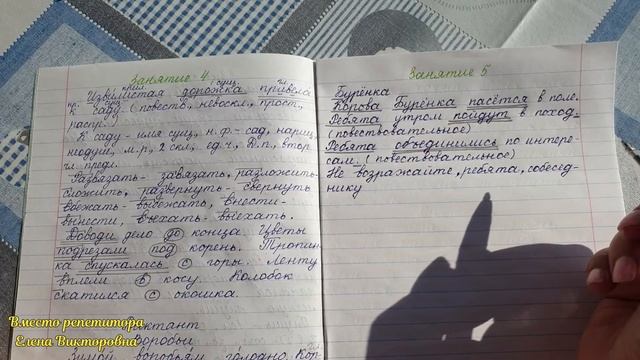 Занятие 4
прил. сущ. гл.
Извилистая дорожка привела
пр. сущ.
к саду. (повеств., невоскл., прост.,
распр.)
К саду - имя сущ., н.ф. - сад, нариц.,
неодуш., м.р., 2 скл., ед.ч., Д.п., втор.
чл. предл.
Развязать - завязать, разложить -
сложить, развернуть - свернуть
вбежать - выбежать, внести -
вынести, въехать - выехать.
Доводи дело до конца. Цветы
подрезали под корень. Тропин-
ка спускалась с горы. Ленту
вплели в косу. Колобок
скатился с окошка.
Диктант
Воробьи
Зимой воробьям голодно. Кор-
Занятие 5
Бурёнка
Корова Бурёнка пасётся в поле.
Ребята утром пойдут в поход.
(повествовательное)
Ребята объединились по интере-
сам. (повествовательное)
Не возражайте, ребята, собесед-
нику
Вместо репетитора
Елена Викторовна